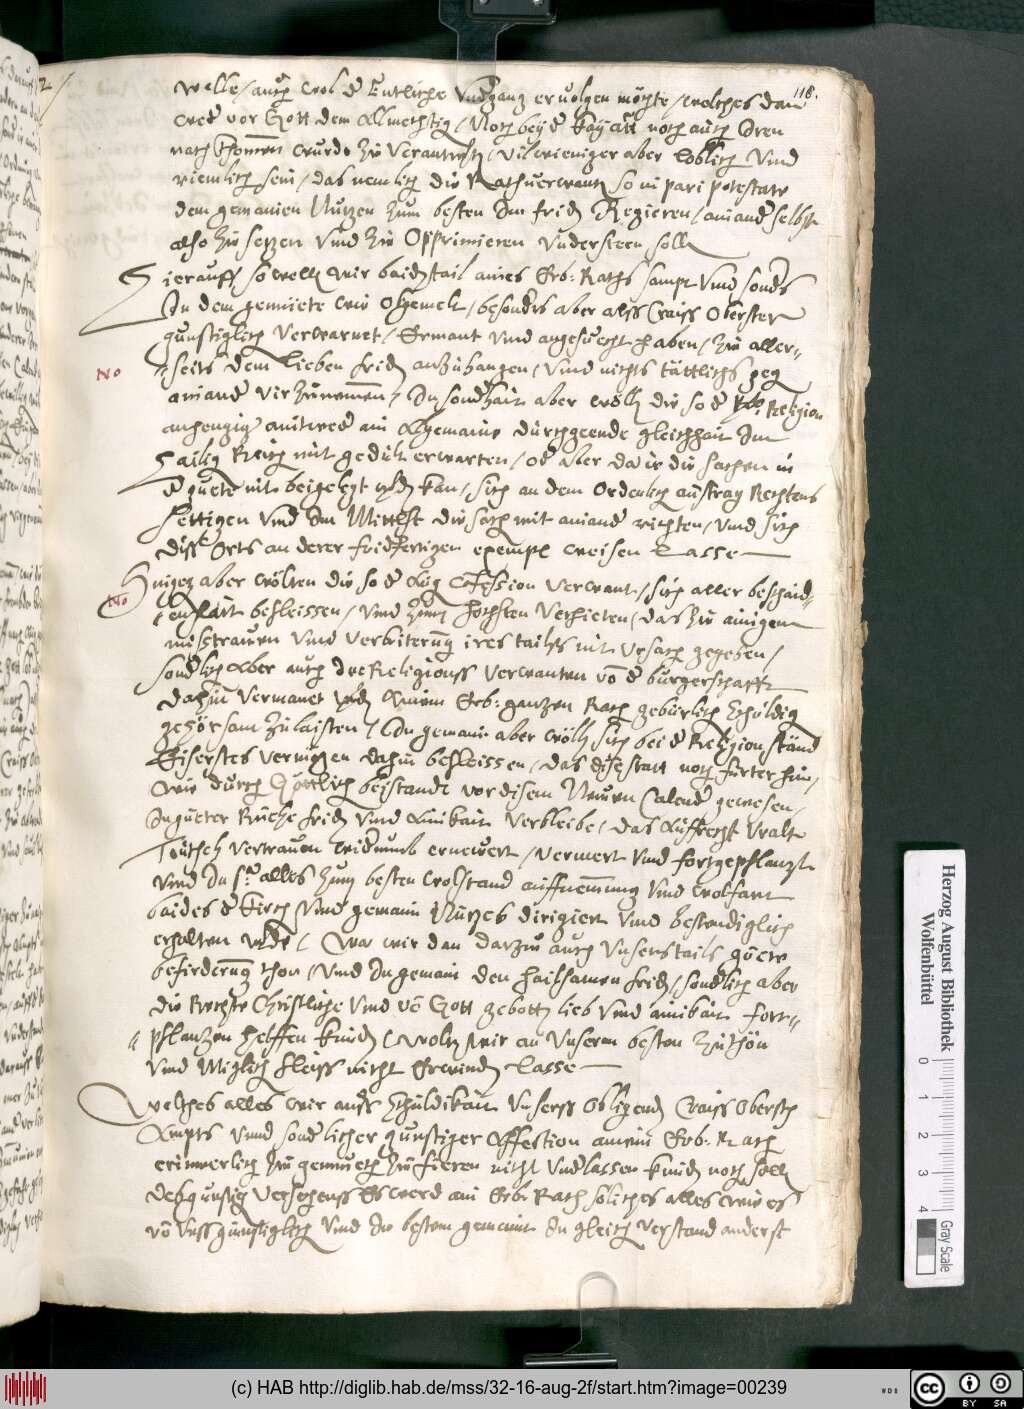 118.
welle / auch wol der Entliche Undganz ervolgen möchte / welches dan
weder vor Gott dem Allmechtig / Noch bey der Kay: Mtt noch auch Iren
nach khomen wurde zu verantwortt / vil weniger aber loblich Und
riemlich sein / das nemlich die Rathsverwante so in pari potestate
dem gemainen Nutzen zum besten Im friden Regieren / ainander selbst
also zu setzen Und zu Opprimieren Understeen solle
Hierauff so wellen wir baidentail aines Erb: Raths sampt Und sonders
In dem gemüete wie Obgemelt / besonders aber alss Craiss Oberster
gunstiglich verwarnet / Ermant und angesuecht haben / zu aller-
seits dem lieben friden anzuhangen / Und nichts tättlichs geg
ainander virzunemmen / In sonderhait aber wöllen die so der Religion
No
anhengig eintweder ain Algemaine durchgeende gleichhait Im
Hailig Reich mit gedult erwarten / oder aber da ie die sachen in
der guete nit beigelegt werden kan / sich an dem Ordenlich austrag Rechtens
settigen Und Im Mittelst die sach mit ainander richten / und sich
diss Orts an derer fridfertigen exempel weisen Lasse
Hinigeg aber wölten die so der Aug Confession verwant / sich aller beschaid-
No
enhait befleissen / Und zum hochsten verhieten / das zu ainigem
misstrauen Und verbitterung ires tailss nit Ursach gegeben /
sonderlich Aber auch die Religionss verwanten von der burgerschafft
dahin vermanet werden Ainem Erb: ganzen Rath gebürlich schuldig
gehörsam zulaisten / In gemain aber wöllen sich bei der Religion ständ
Eiserstes vermögen dahin befleissen / das dise statt noch fürterhin /
wie durch Göttlich beistandt vor disem Neuen Calender gewesen /
In gueter Ruche friden Und Ainikait verbleibe / das Aufrecht Uralt
Teutsch vertrauen widerumb ernewert / vermert Und fortgepflanzt
Unnd In alles zum besten wolstand auffnemung Und wolfart
baides der Kirchen Und gemain Nutzes dirigiert Und bestendiglich
erhalten werde / Wa wir dan darzu auch Unserstails guete
befürderung thon / Und In gemain den hailsamen friden / sonderlich aber
die Rechte Christliche Und von Gott gebotten lieb Und ainikait fort-
pflanzen helffen kinden / Wolten wir an Unserm besten zuthon
Und Miglich fleiss nicht Erwinden Lasse
Welches alles wir auss schuldikait Unserss Obligenden Craiss Obersten
Ampts Unnd sonderlicher gunstiger Affection ainem Erb: Rath
erinnerlich zu gemueth zufieren nicht Underlassen kinden noch sollen
dess gunstig versehenss Es werd ain Erb: Rath solliches alles wie es
von Unss gunstiglich Und Im bestem gemaint In gleichem verstand anderst
Herzog August Bibliothek
Wolfenbüttel
0 1 2 3 4
Gray Scale
(c) HAB http://diglib.hab.de/mss/32-16-aug-2f/start.htm?image=00239
WDB
cc BY SA